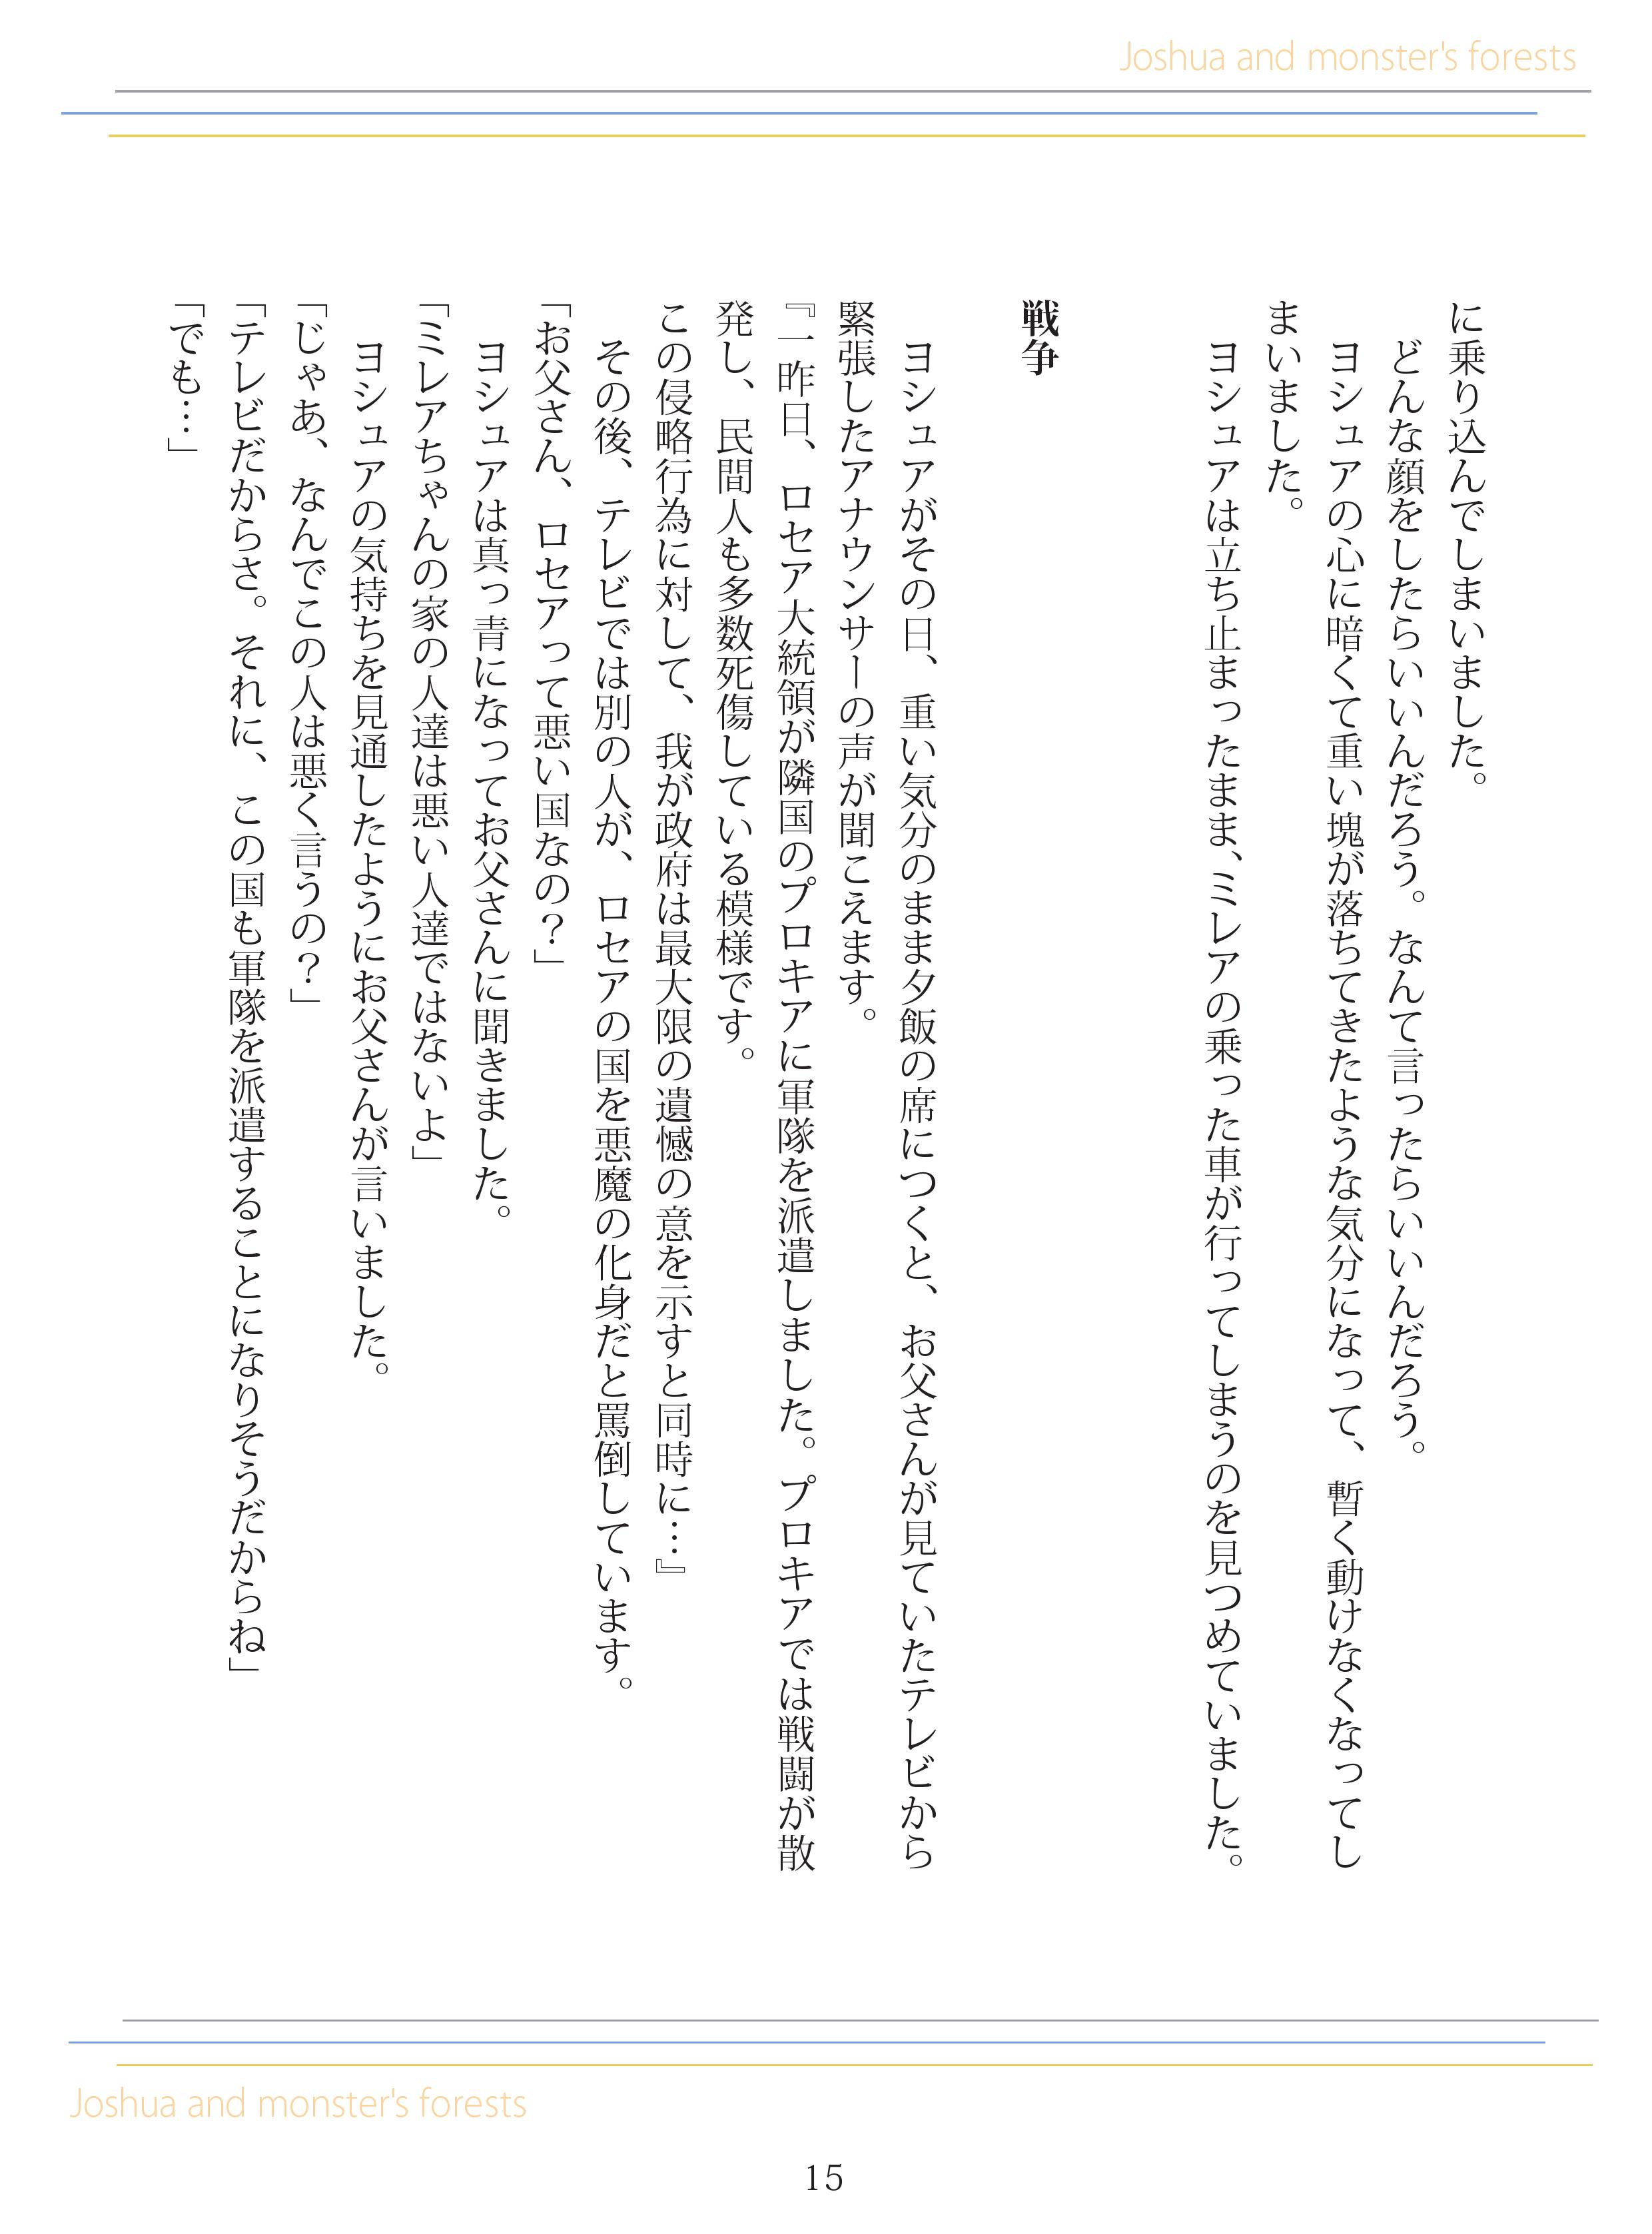 Joshua and monster's forests
に乗り込んでしまいました。
　どんな顔をしたらいいんだろう。なんて言ったらいいんだろう。
　ヨシュアの心に暗くて重い塊が落ちてきたような気分になって、暫く動けなくなってし
まいました。
　ヨシュアは立ち止まったまま、ミレアの乗った車が行ってしまうのを見つめていました。
戦争
　ヨシュアがその日、重い気分のまま夕飯の席につくと、お父さんが見ていたテレビから
緊張したアナウンサーの声が聞こえます。
『一昨日、ロセア大統領が隣国のプロキアに軍隊を派遣しました。プロキアでは戦闘が散
発し、民間人も多数死傷している模様です。
この侵略行為に対して、我が政府は最大限の遺憾の意を示すと同時に…』
　その後、テレビでは別の人が、ロセアの国を悪魔の化身だと罵倒しています。
「お父さん、ロセアって悪い国なの？」
　ヨシュアは真っ青になってお父さんに聞きました。
「ミレアちゃんの家の人達は悪い人達ではないよ」
　ヨシュアの気持ちを見通したようにお父さんが言いました。
「じゃあ、なんでこの人は悪く言うの？」
「テレビだからさ。それに、この国も軍隊を派遣することになりそうだからね」
「でも…」
Joshua and monster's forests
15